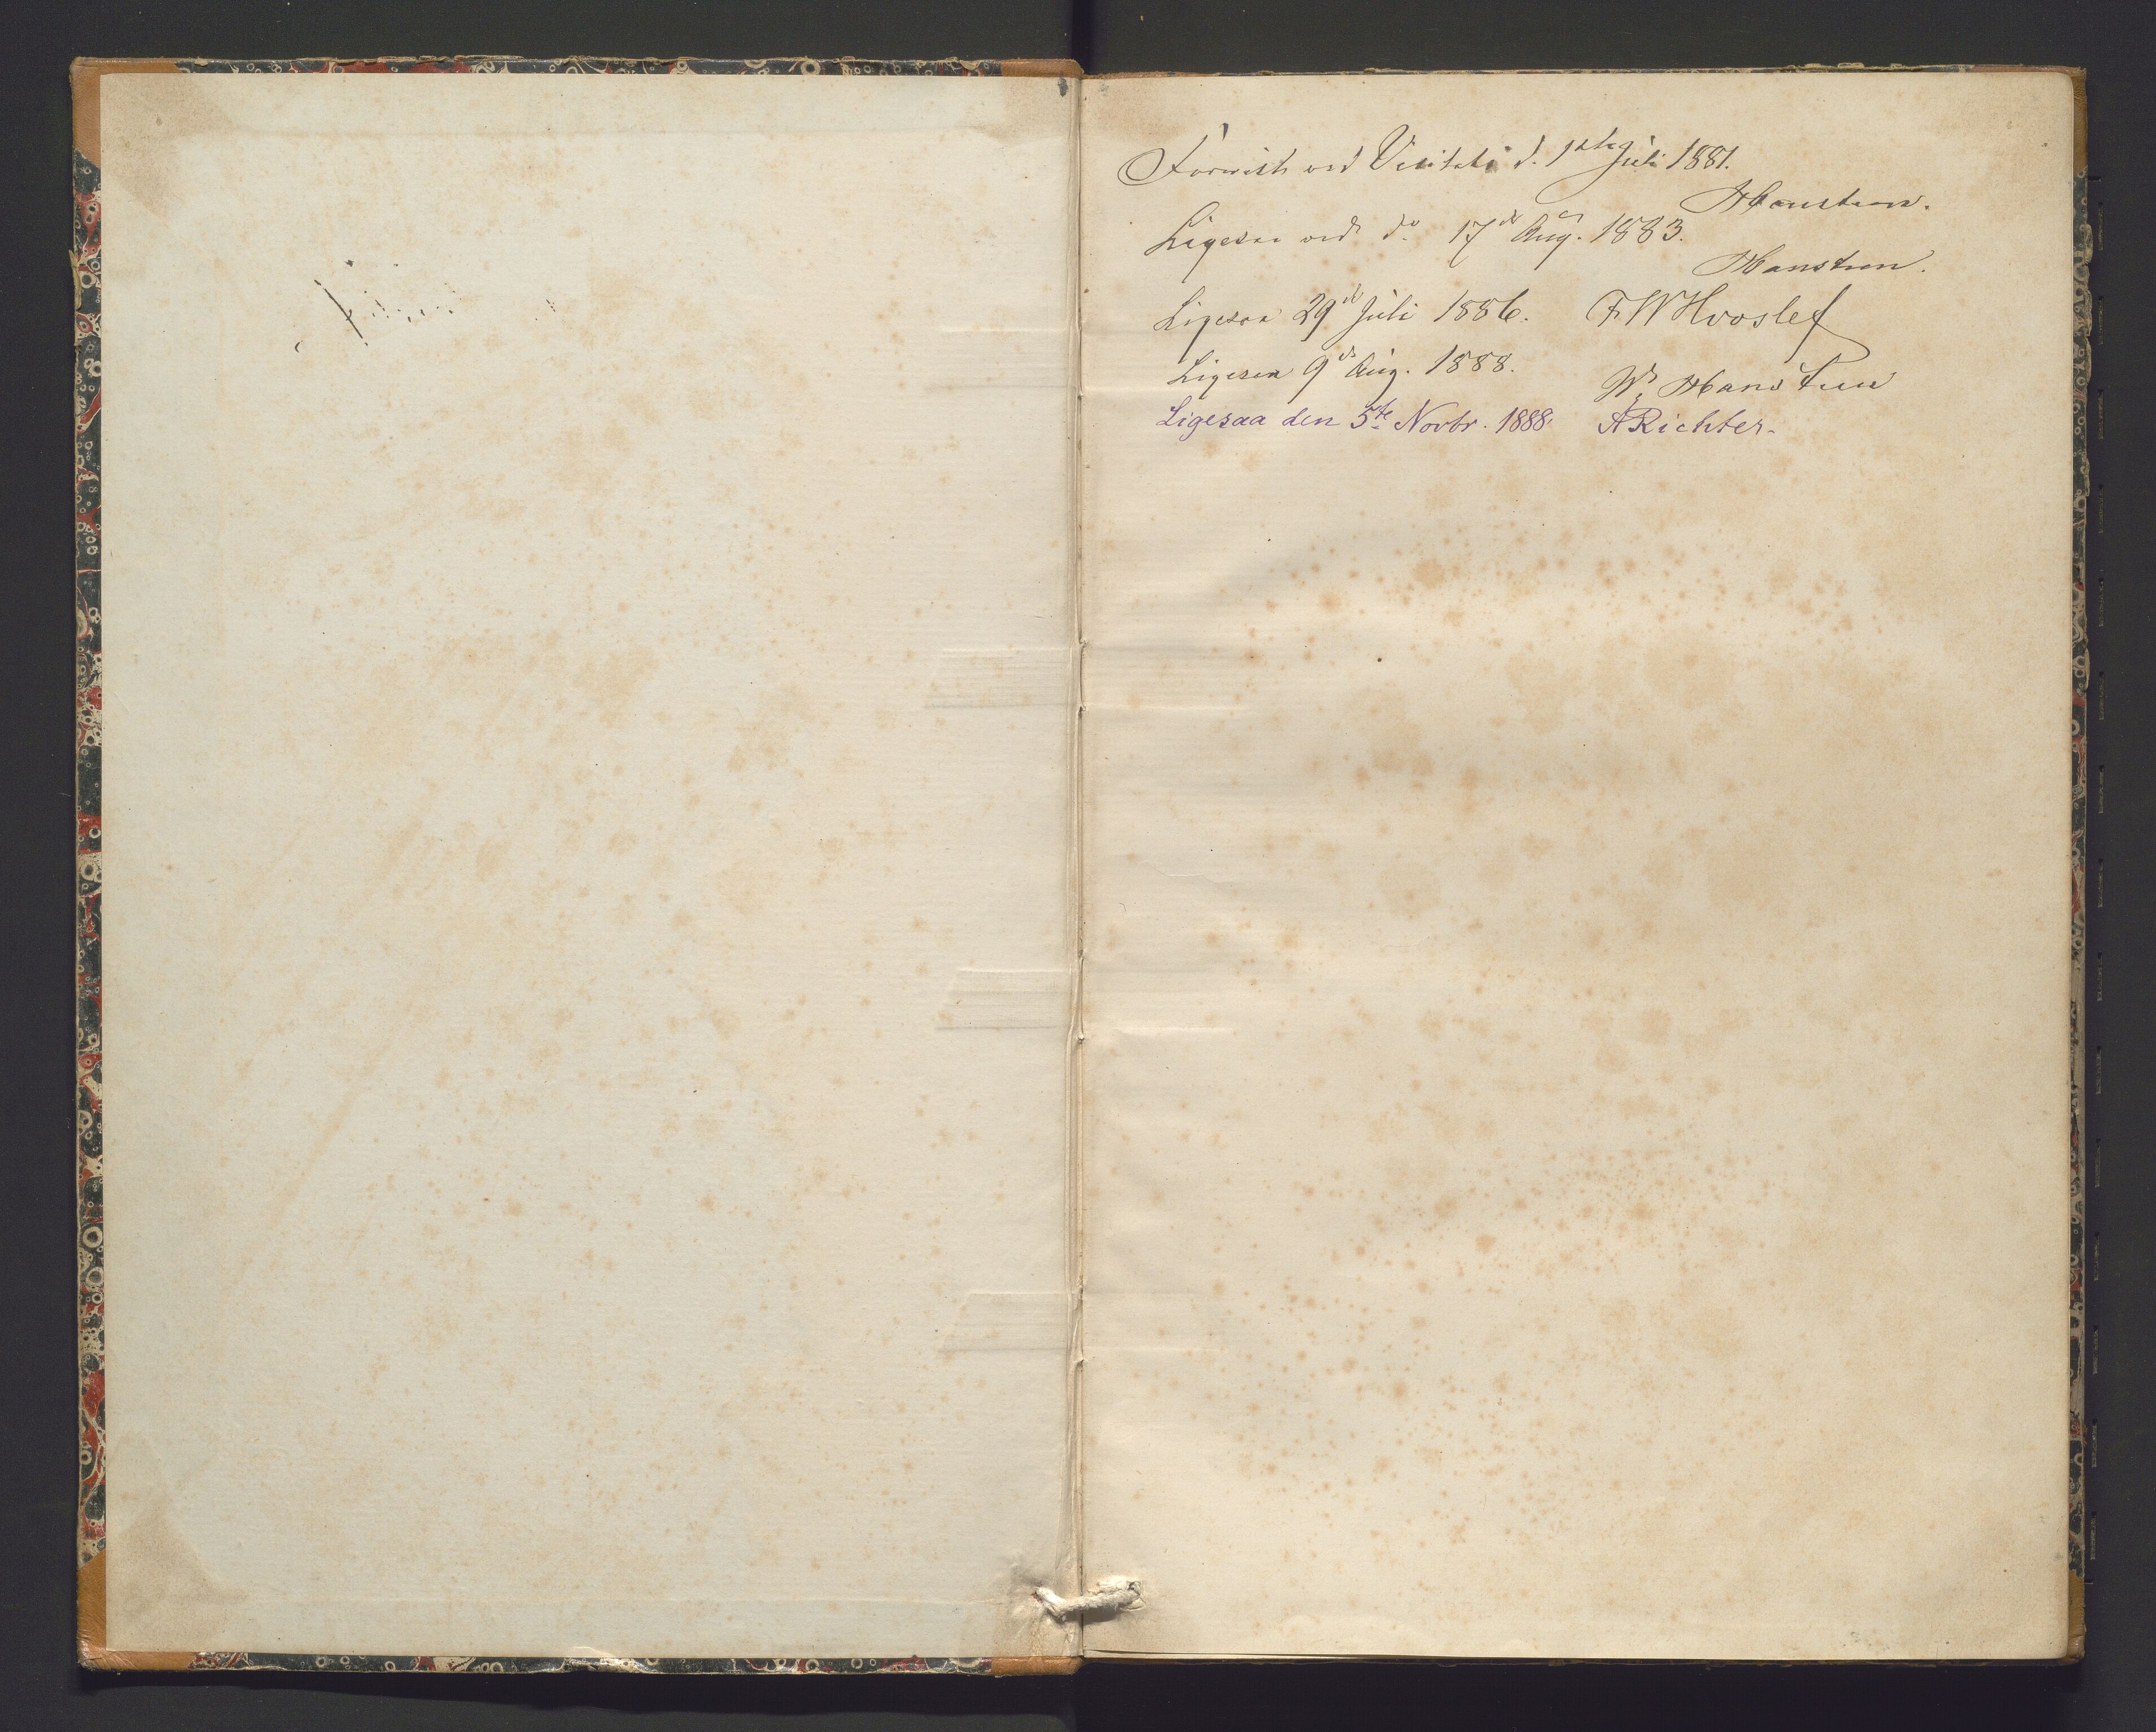 Forevist ved Visitats d. 1ste Juli 1881.
Hanssteen.
Ligesaa ved do 17de Aug. 1883.
Hanssteen.
Ligesaa 29de Juli 1886. FWHvoslef
Ligesaa 9de Aug. 1888.
Hanssteen
Ligesaa den 5te Novbr. 1888. ARichter.